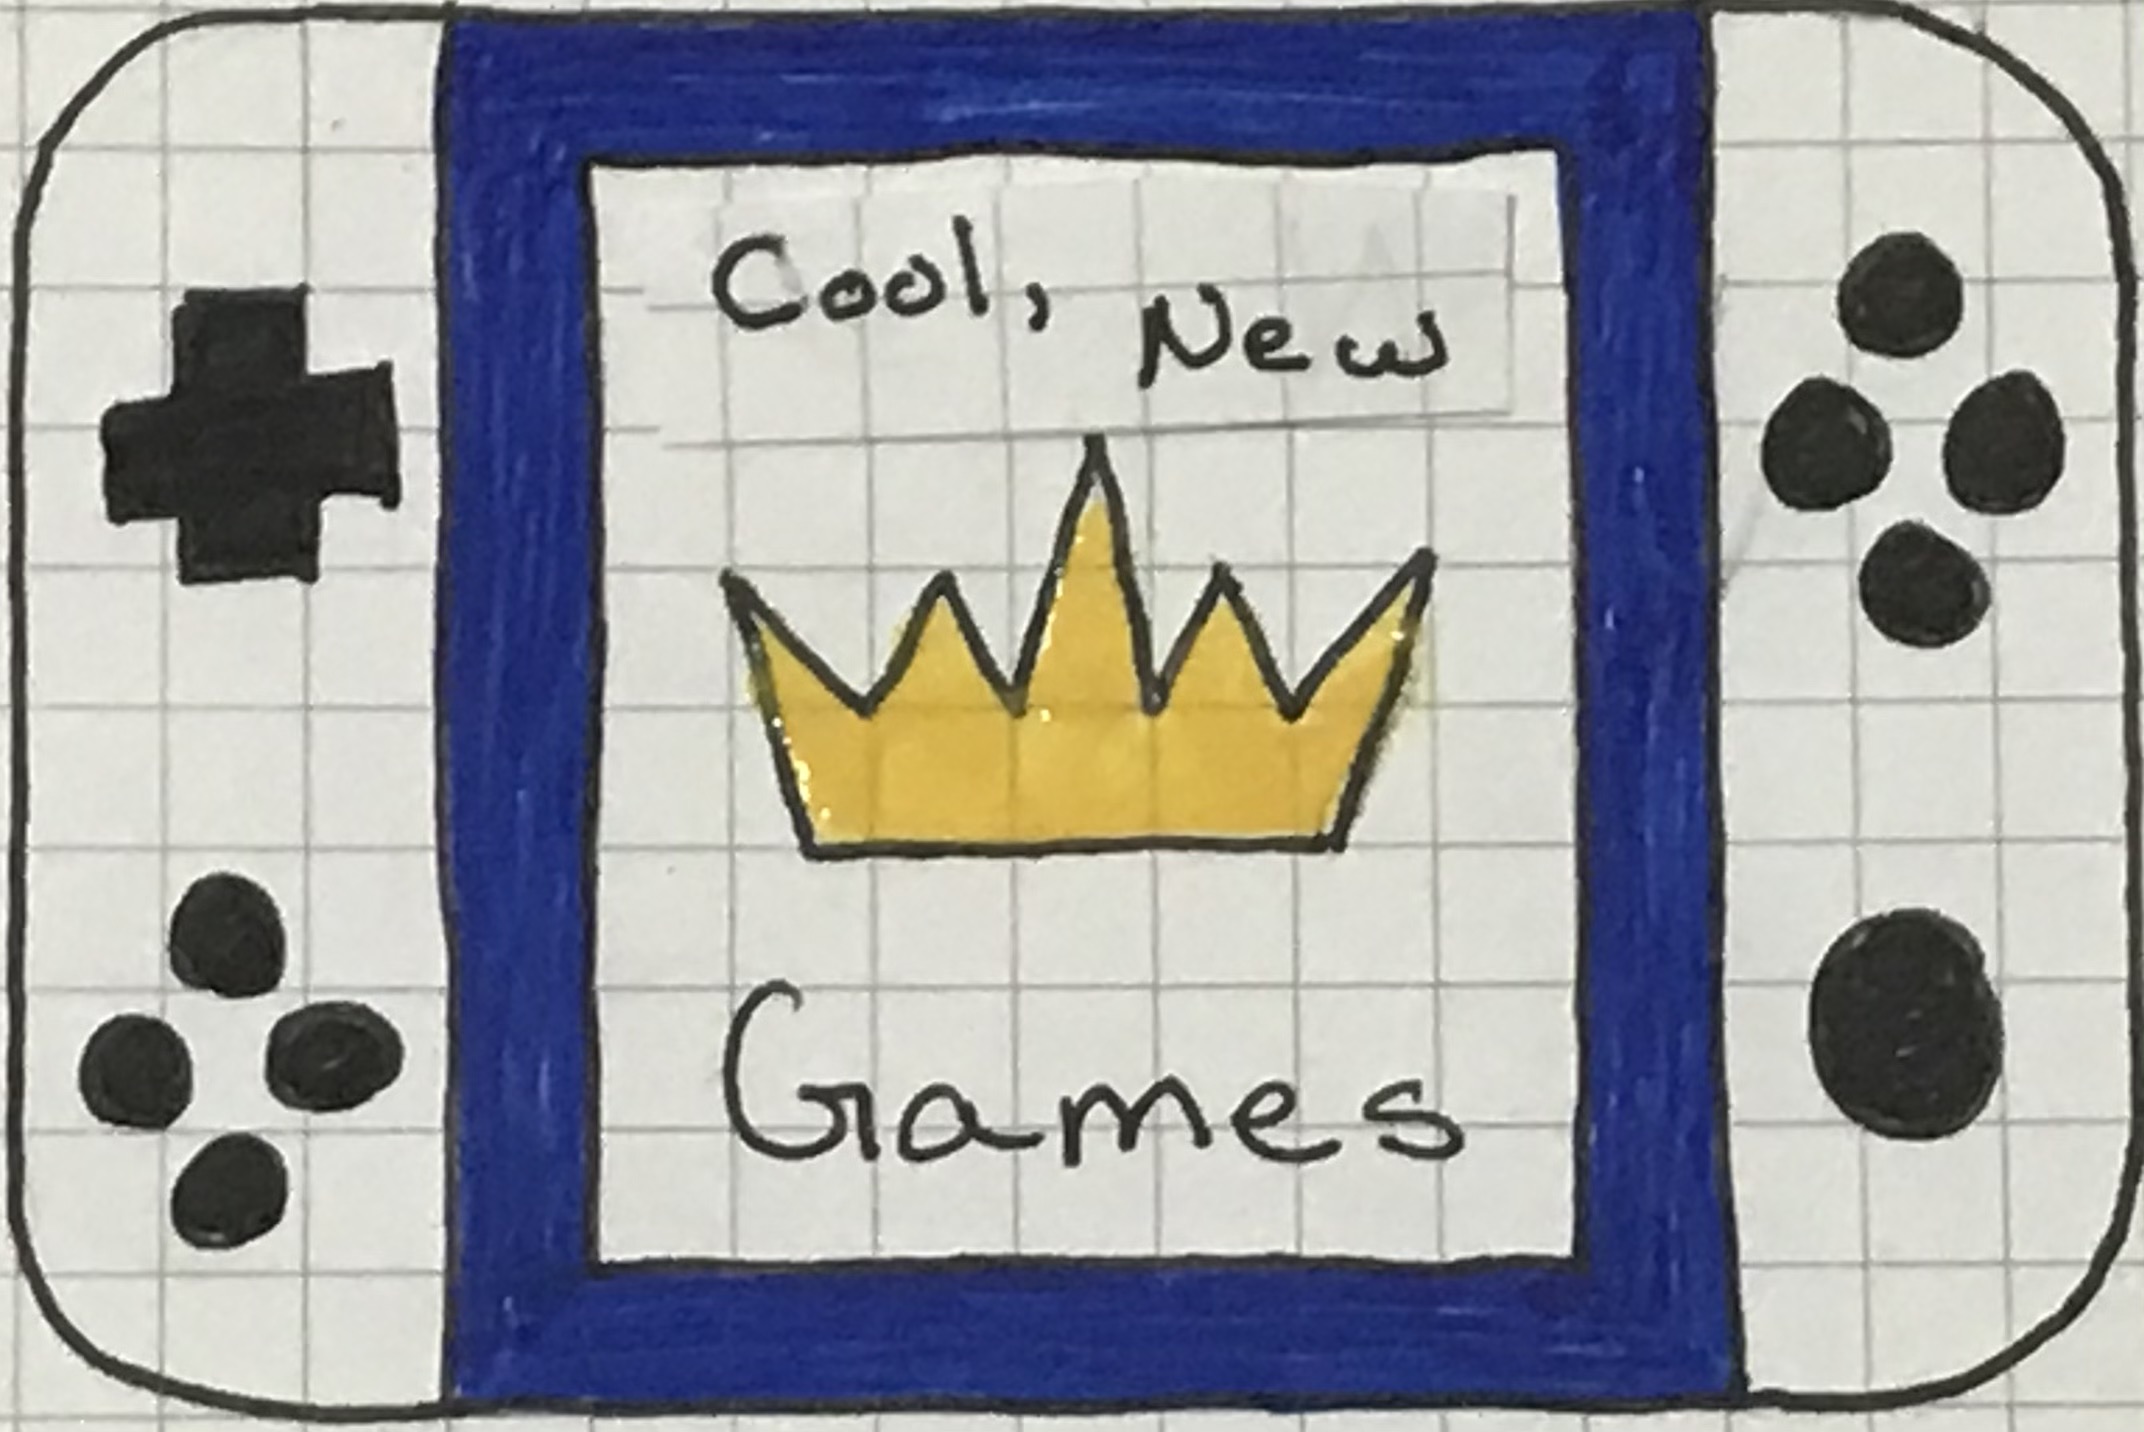 Cool, New
Games